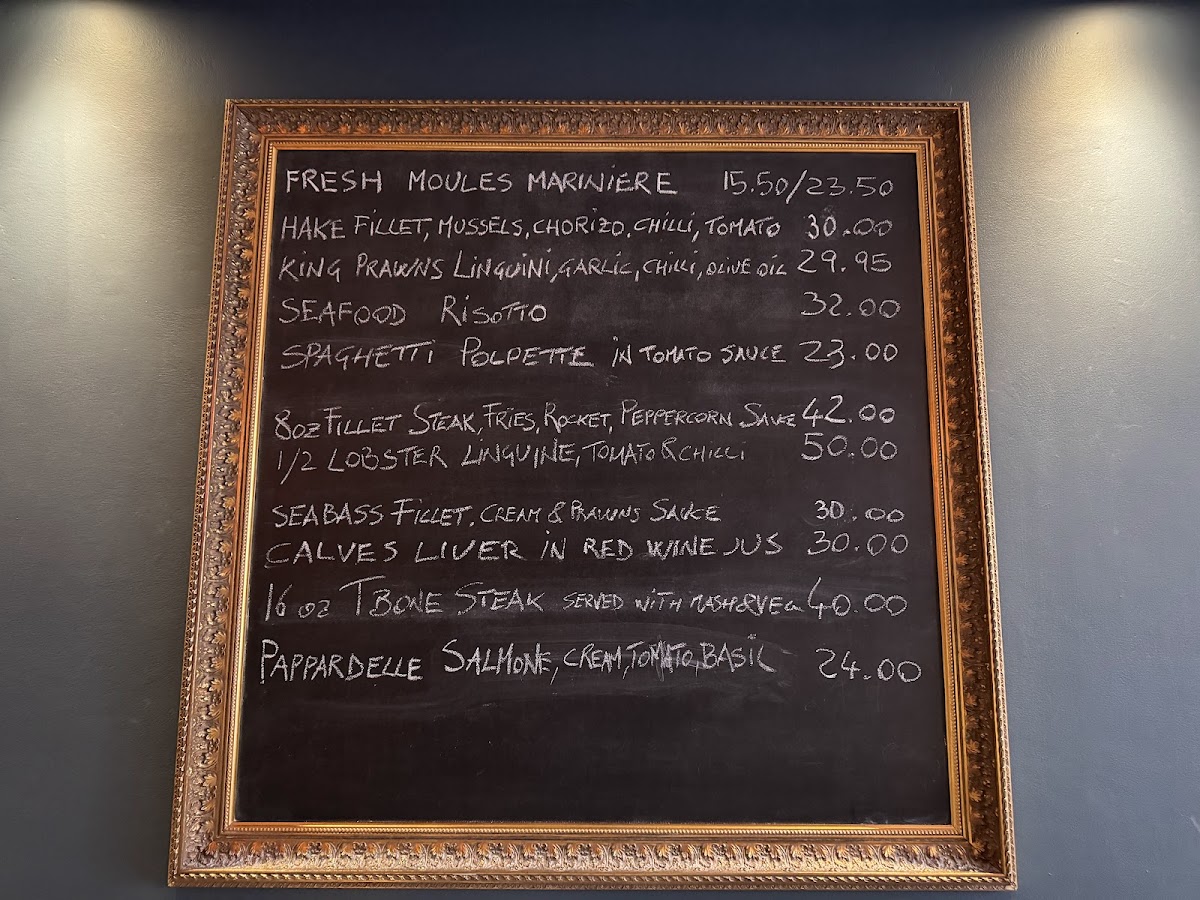 FRESH MOULES MARINIERE 15.50/23.50
HAKE FILLET, MUSSELS, CHORIZO, CHILLI, TOMATO 30.00
KING PRAWNS LINGUINI, GARLIC, CHILLI, OLIVE OIL 29.95
SEAFOOD RISOTTO 32.00
SPAGHETTI POLPETTE IN TOMATO SAUCE 23.00
8OZ FILLET STEAK, FRIES, ROCKET, PEPPERCORN SAUCE 42.00
1/2 LOBSTER LINGUINE, TOMATO & CHILLI 50.00
SEABASS FILLET, CREAM & PRAWNS SAUCE 30.00
CALVES LIVER IN RED WINE JUS 30.00
16 OZ T BONE STEAK SERVED WITH MASH & VEG 40.00
PAPPARDELLE SALMONE, CREAM, TOMATO, BASIL 24.00